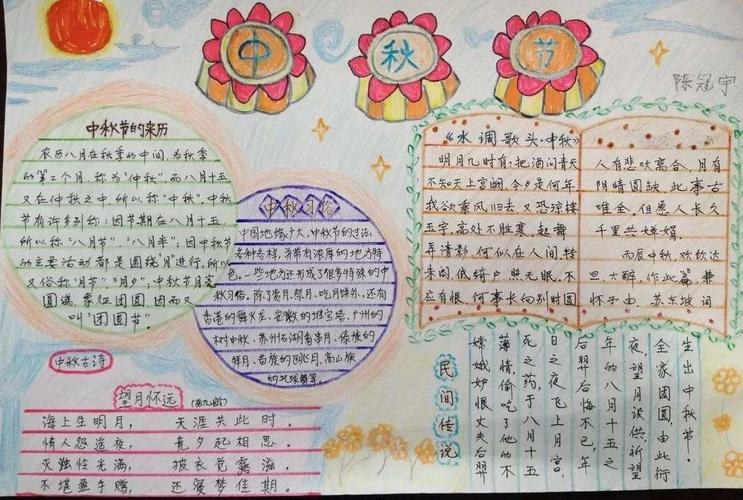 中秋节
陈冠宇
中秋节的来历
农历八月在秋季的中间,为秋季
的第二个月,称为"仲秋",而八月十五
又在仲秋之中,所以称"中秋"。中秋
节有许多别称:因节期在八月十五,
所以称"八月节"、"八月半";因中秋节
的主要活动都是围绕"月"进行,所以
又俗称"月节""月夕";中秋节月亮
圆满,象征团圆,因而又
叫"团圆节"。
中秋习俗
中国地缘广大,中秋节的过法,
各种各样,并带有浓厚的地方特
色。一些地方还形成了很多特殊的中
秋习俗。除了赏月、祭月、吃月饼外,还有
香港的舞火龙、安徽的堆宝塔、广州的
树中秋、苏州石湖看串月、傣族的
拜月、苗族的跳月、高山族
的托球舞等。
《水调歌头·中秋》
明月几时有?把酒问青天
不知天上宫阙,今夕是何年
我欲乘风归去,又恐琼楼
玉宇,高处不胜寒。起舞
弄清影,何似在人间。转
朱阁,低绮户,照无眠。不
应有恨,何事长向别时圆
人有悲欢离合,月有
阴晴圆缺,此事古
难全。但愿人长久
千里共婵娟。
丙辰中秋,欢饮达
旦,大醉,作此篇,兼
怀子由。苏东坡词
中秋古诗
望月怀远(张九龄)
海上生明月,天涯共此时。
情人怨遥夜,竟夕起相思。
灭烛怜光满,披衣觉露滋。
不堪盈手赠,还寝梦佳期。
民间传说
嫦娥妒恨丈夫后羿
薄情,偷吃了他的不
死之药于八月十五
日之夜飞上月宫,
后羿后悔不已,年
年的八月十五之
夜,望月谈供,祈望
全家团圆,由此衍
生出中秋节。